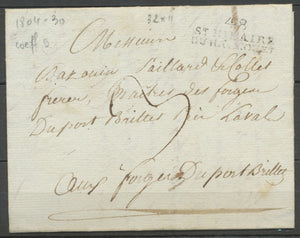 1804-30
32x11
48
ST HILAIRE
DU HARCOUET
Messieurs
Bazouin Paillard Nollet
freres, Maitres des forges
Duport Brillet Par Laval
aux forges Duport Brillet